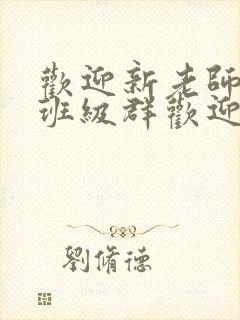 歡迎新老師
班級群歡迎
劉脩德